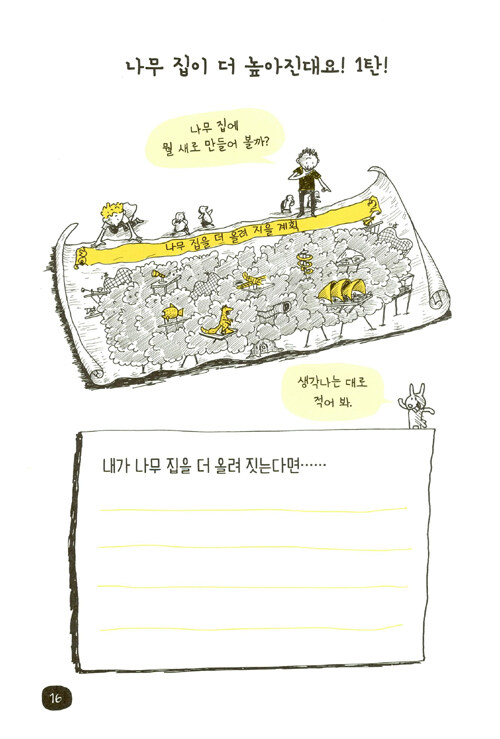 나무 집이 더 높아진대요! 1탄!
나무 집에
뭘 새로 만들어 볼까?
나무 집을 더 올려 지을 계획
생각나는 대로
적어 봐.
내가 나무 집을 더 올려 짓는다면……
16